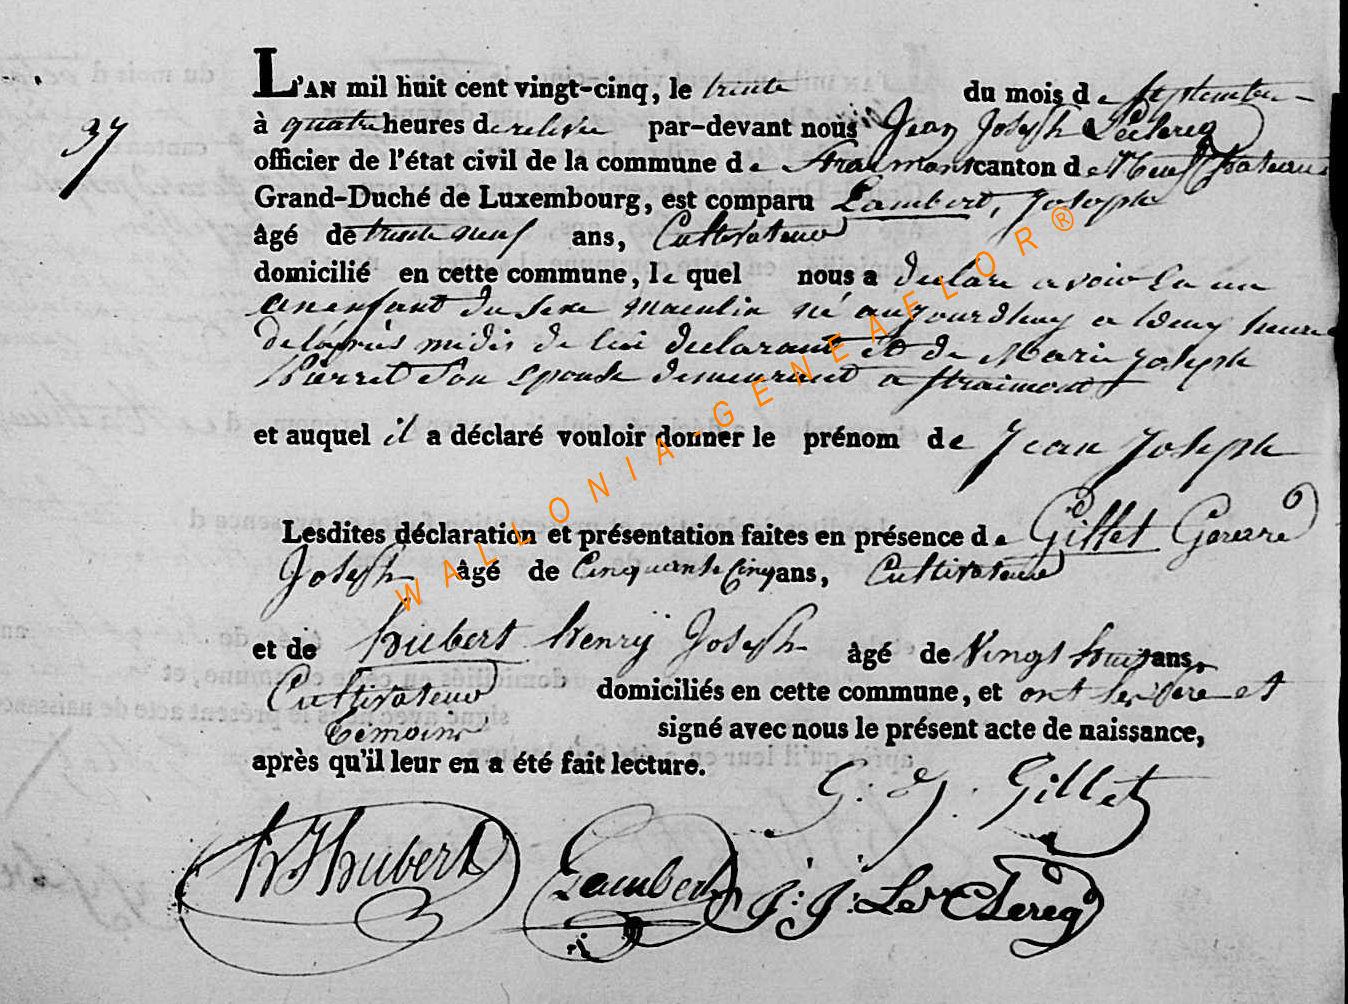 L'AN mil huit cent vingt-cinq, le trente du mois de septembre
37
à quatre heures de relevée par-devant nous Jean Joseph Leclercq
officier de l'état civil de la commune de Straimont canton de Neufchateau
Grand-Duché de Luxembourg, est comparu Lambert, Joseph
âgé de trente neuf ans, Cultivateur
domicilié en cette commune, le quel nous a declare avoir eu un
un enfant du sexe masculin né aujourdhuy a deux heure
de l'après midi de lui declarant et de Marie Joseph
Pierret son epouse demeurant a Straimont
et auquel il a déclaré vouloir donner le prénom de Jean Joseph
Lesdites déclaration et présentation faites en présence de Gillet Gerard
Joseph âgé de Cinquante Cinq ans, Cultivateur
et de hubert henry Joseph âgé de Vingt huit ans,
Cultivateur domiciliés en cette commune, et ont les
témoins signé avec nous le présent acte de naissance,
après qu'il leur en a été fait lecture.
G. J. Gillet
h J hubert Lambert J: J: Leclercq
WALLONIA-GENEAFLOR®